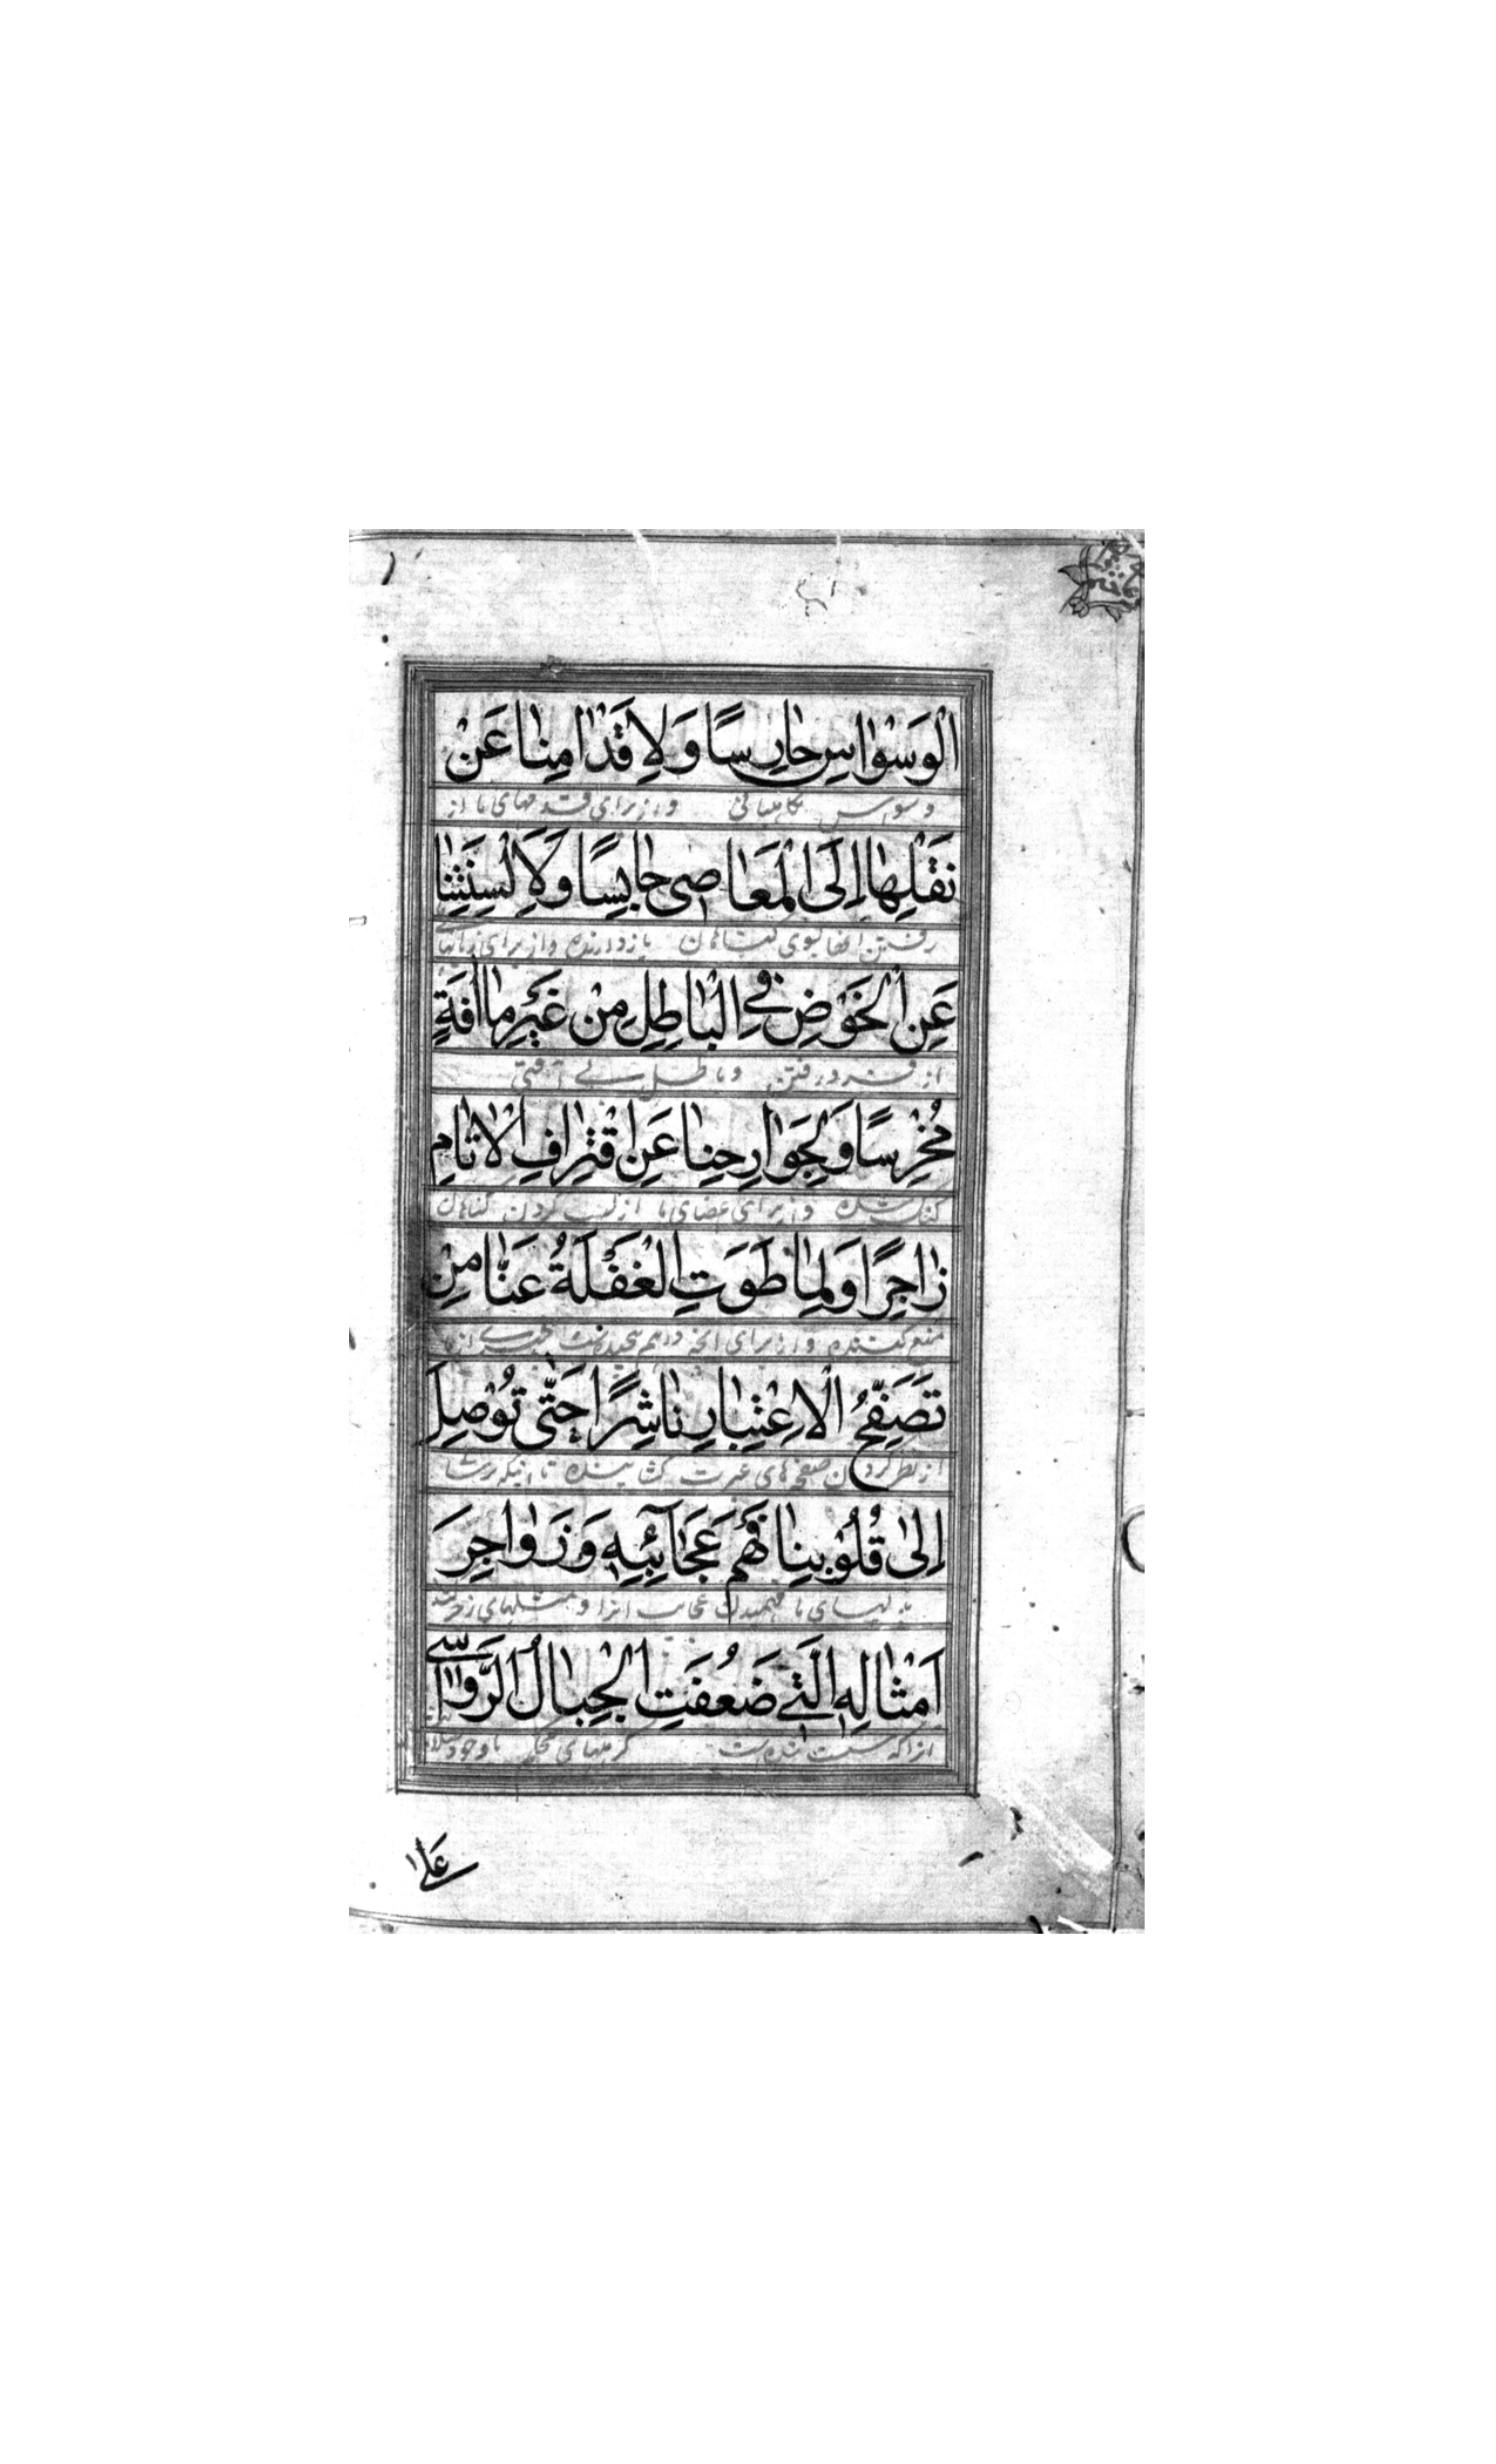 الْوَسْوٰاسِ حٰارِسًا وَ لِاَقْدٰامِنٰا عَنْ
وسوس نگاهبانی و از برای قدمهای ما از
نَقْلِهٰا اِلَی الْمَعٰاصٖی حٰابِسًا وَلِاَلْسِنَتِنٰا
رفتن انها بسوی گناهان بازدارنده و از برای زبانهای
عَنِ الْخَوْضِ فِی الْبٰاطِلِ مِنْ غَیْرِ مٰا اٰفَةٍ
از فرورفتن در باطل بی آفتی
مُخْرِسًا وَلِجَوٰارِحِنٰا عَنِ اقْتِرٰافِ الْاٰثٰامِ
گنک کننده و از برای اعضای ما از کسب کردن گناهان
زٰاجِرًا وَلِمٰا طَوَتِ الْغَفْلَةُ عَنّٰا مِنْ
منع کننده و از برای انچه درهم پیچیده است
تَصَفُّحِ الْاِعْتِبٰارِ نٰاشِرًا حَتّٰی تُوْصِلَ
از نظر کردن صفحهای عبرت گشاینده تا اینکه برسانی
اِلٰی قُلُوْبِنٰا فَهْمَ عَجٰآئِبِهٖ وَ زَوٰاجِرَ
بدلهای ما فهمیدن عجایب انرا و مثلهای
اَمْثٰالِهِ الَّتٖی ضَعُفَتِ الْجِبٰالُ الرَّوٰاسٖی
انرا که سست شده است کوههای محکم با وجود
عَلٰی